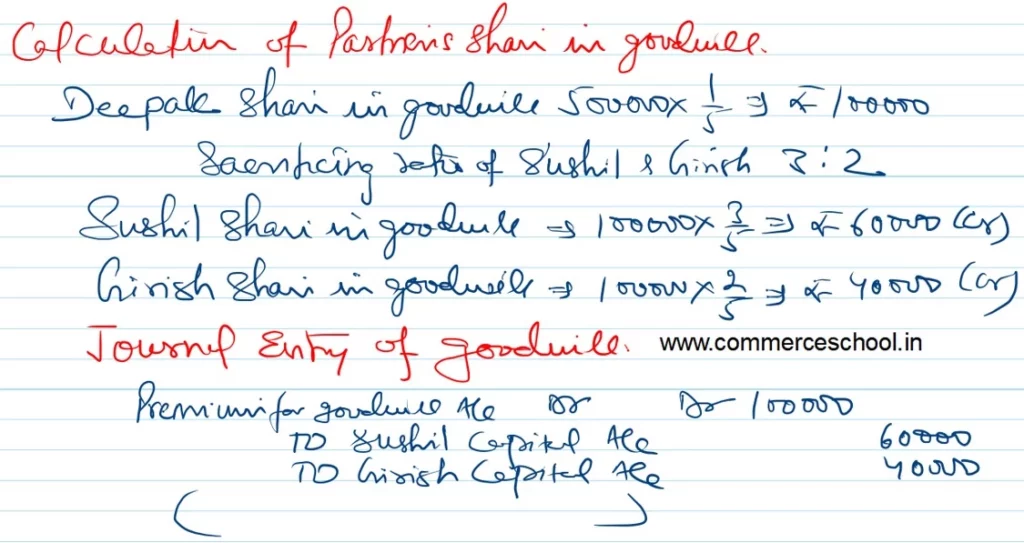 Calculation of Partners Share in goodwill.
Deepak Share in goodwill 500000 × 1/5 ⇒ ₹ 100000
Sacrificing ratio of Sushil & Girish 3 : 2
Sushil Share in goodwill ⇒ 100000 × 3/5 ⇒ ₹ 60000 (Cr)
Girish Share in goodwill ⇒ 100000 × 2/5 ⇒ ₹ 40000 (Cr)
Journal Entry of goodwill. www.commerceschool.in
Premium for goodwill A/c Dr Dr 100000
TO Sushil Capital A/c 60000
TO Girish Capital A/c 40000
( )